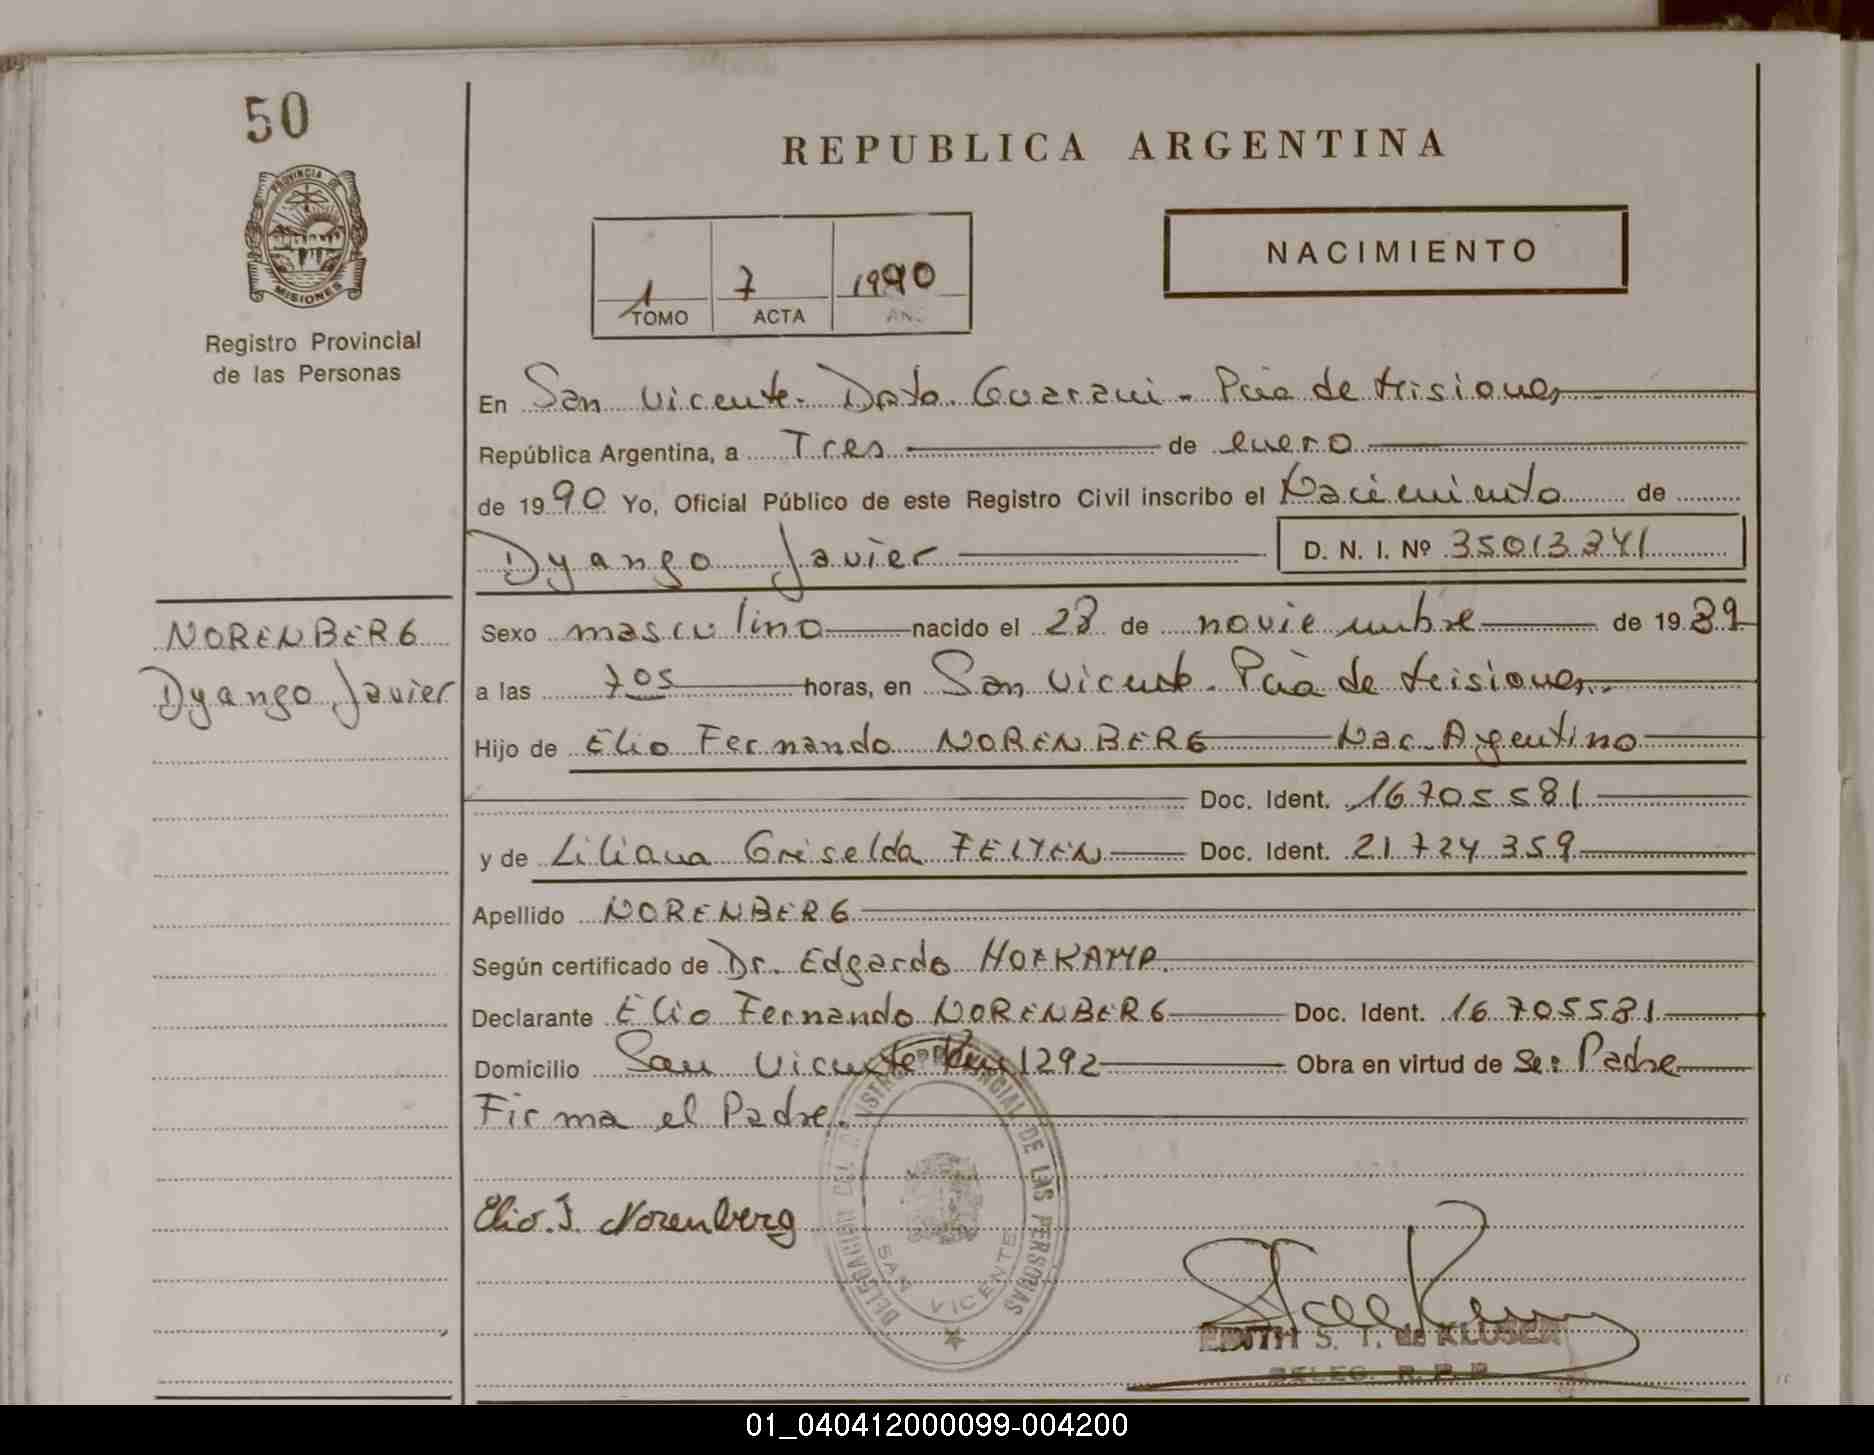 50
REPUBLICA ARGENTINA
PROVINCIA DE
MISIONES
Registro Provincial
de las Personas
1 7 1990
TOMO ACTA AÑO
NACIMIENTO
En San Vicente - Dpto. Guarani - Pcia de Misiones
República Argentina, a Tres de enero
de 1990 Yo, Oficial Público de este Registro Civil inscribo el Nacimiento de
Dyango Javier D. N. I. Nº 35013241
NORENBERG
Dyango Javier
Sexo masculino nacido el 28 de noviembre de 1989
a las 705 horas, en San Vicente - Pcia de Misiones.
Hijo de Elio Fernando NORENBERG Nac. Argentino
Doc. Ident. 16.705.581
y de Liliana Griselda FELTEN Doc. Ident. 21.724.359
Apellido NORENBERG
Según certificado de Dr. Edgardo HOFKAMP.
Declarante Elio Fernando NORENBERG Doc. Ident. 16.705581
Domicilio San Vicente Km 1292 Obra en virtud de Ser Padre
Firma el Padre.
Elio. F. Norenberg
DELEGACION DEL REGISTRO PROVINCIAL DE LAS PERSONAS
SAN VICENTE
EDITH S. T. de KLUSER
DELEG. R. P. P.
01_040412000099-004200